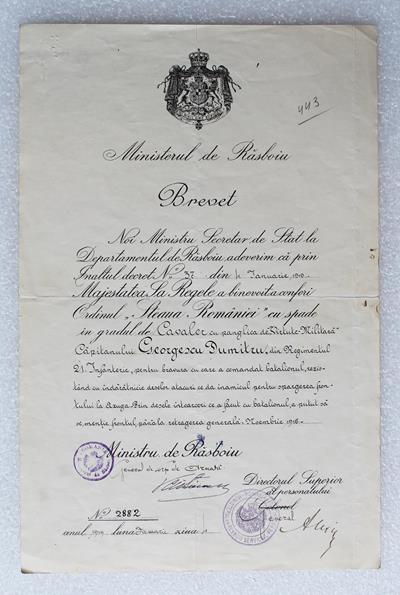 443
Ministerul de Răsboiu
Brevet
Noi Ministru Secretar de Stat la
Departamentul de Răsboiu, adeverim că prin
Înaltul decret No 37 din Ianuarie
Majestatea Sa Regele a binevoit a conferi
Ordinul „Steaua României" cu spade
în gradul de Cavaler cu panglica de Virtute Militară
Căpitanului Georgescu Dumitru, din Regimentul
21 Infanterie, pentru bravura cu care a comandat batalionul, rezis-
tând cu îndârătnicie deselor atacuri ce da inamicul pentru spargerea fron-
tului la Azuga. Prin desele întoarceri ce a făcut cu batalionul, a putut să
se menție frontul, până la retragerea generală. Noembrie 1916.
Ministru de Răsboiu
General de corp de Armată
Directorul Superior
al personalului
Colonel
General
No 2882
anul 1919 luna Ianuarie ziua